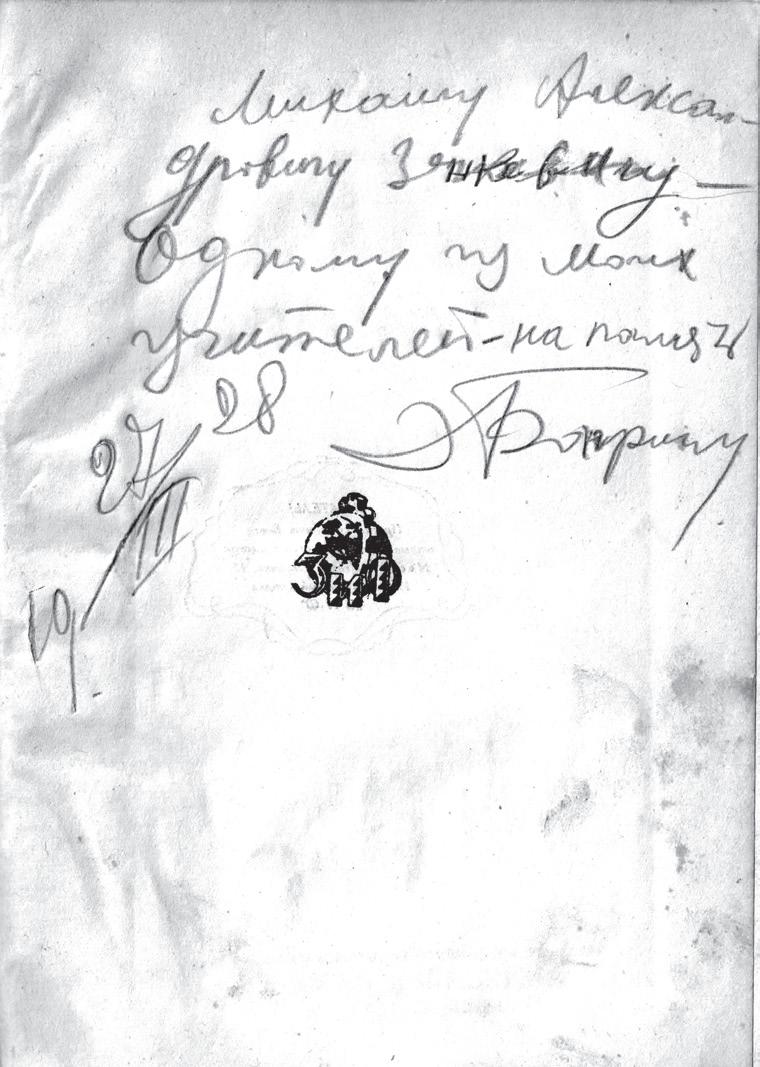 Михаилу Алексан-
дровичу Зенкевичу —
Одному из моих
учителей - на память
Э Багрицк
28
27/III
19
ЗИФ